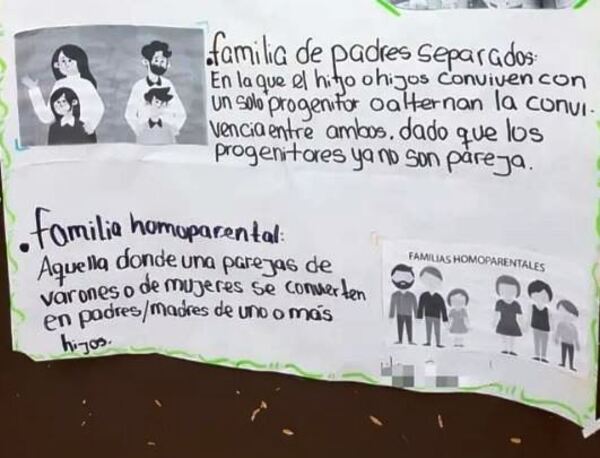 .familia de padres separados:
En la que el hijo o hijos conviven con
un solo progenitor o alternan la convi.
vencia entre ambos. dado que los
progenitores ya no son pareja.
.familia homoparental:
Aquella donde una parejas de
varones o de mujeres se convierten
en padres/madres de uno o más
hijos.
FAMILIAS HOMOPARENTALES